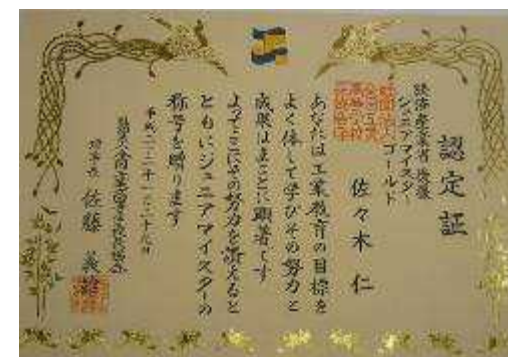 認定証
経済産業省後援
ジュニアマイスター
ゴールド
佐々木仁
あなたは工業教育の目標を
よく体して学びその努力と
成果はまことに顕著です
よってここにその努力を讃えると
ともにジュニアマイスターの
称号を贈ります
平成二十
理事長 佐藤義雄